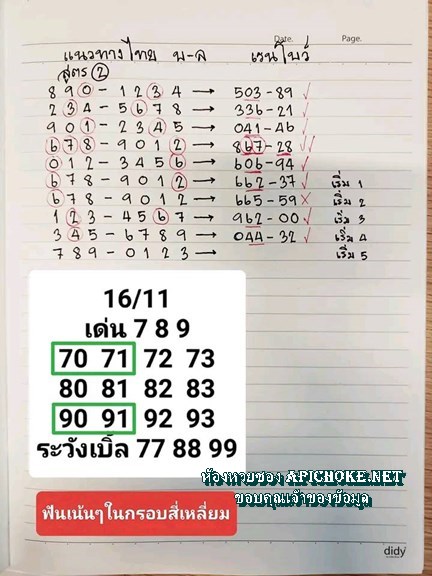 Date. Page.
แนวทางไทย บ-ล เรนโบว์
สูตร ②
8 9 0 - 1 2 3 4 → 503-89 ✓
2 3 4 - 5 6 7 8 → 336-21 ✓
9 0 1 - 2 3 4 5 → 041-46 ✓
6 7 8 - 9 0 1 2 → 867-28 ✓✓
0 1 2 - 3 4 5 6 → 606-94 ✓
6 7 8 - 9 0 1 2 → 662-37 ✓ เริ่ม 1
6 7 8 - 9 0 1 2 → 665-59 × เริ่ม 2
1 2 3 - 4 5 6 7 → 962-00 ✓ เริ่ม 3
3 4 5 - 6 7 8 9 → 044-32 ✓ เริ่ม 4
7 8 9 - 0 1 2 3 → เริ่ม 5
16/11
เด่น 7 8 9
70 71 72 73
80 81 82 83
90 91 92 93
ระวังเบิ้ล 77 88 99
ห้องหวยซอง APICHOKE.NET
ขอบคุณเจ้าของข้อมูล
ฟันเน้นๆในกรอบสี่เหลี่ยม
didy